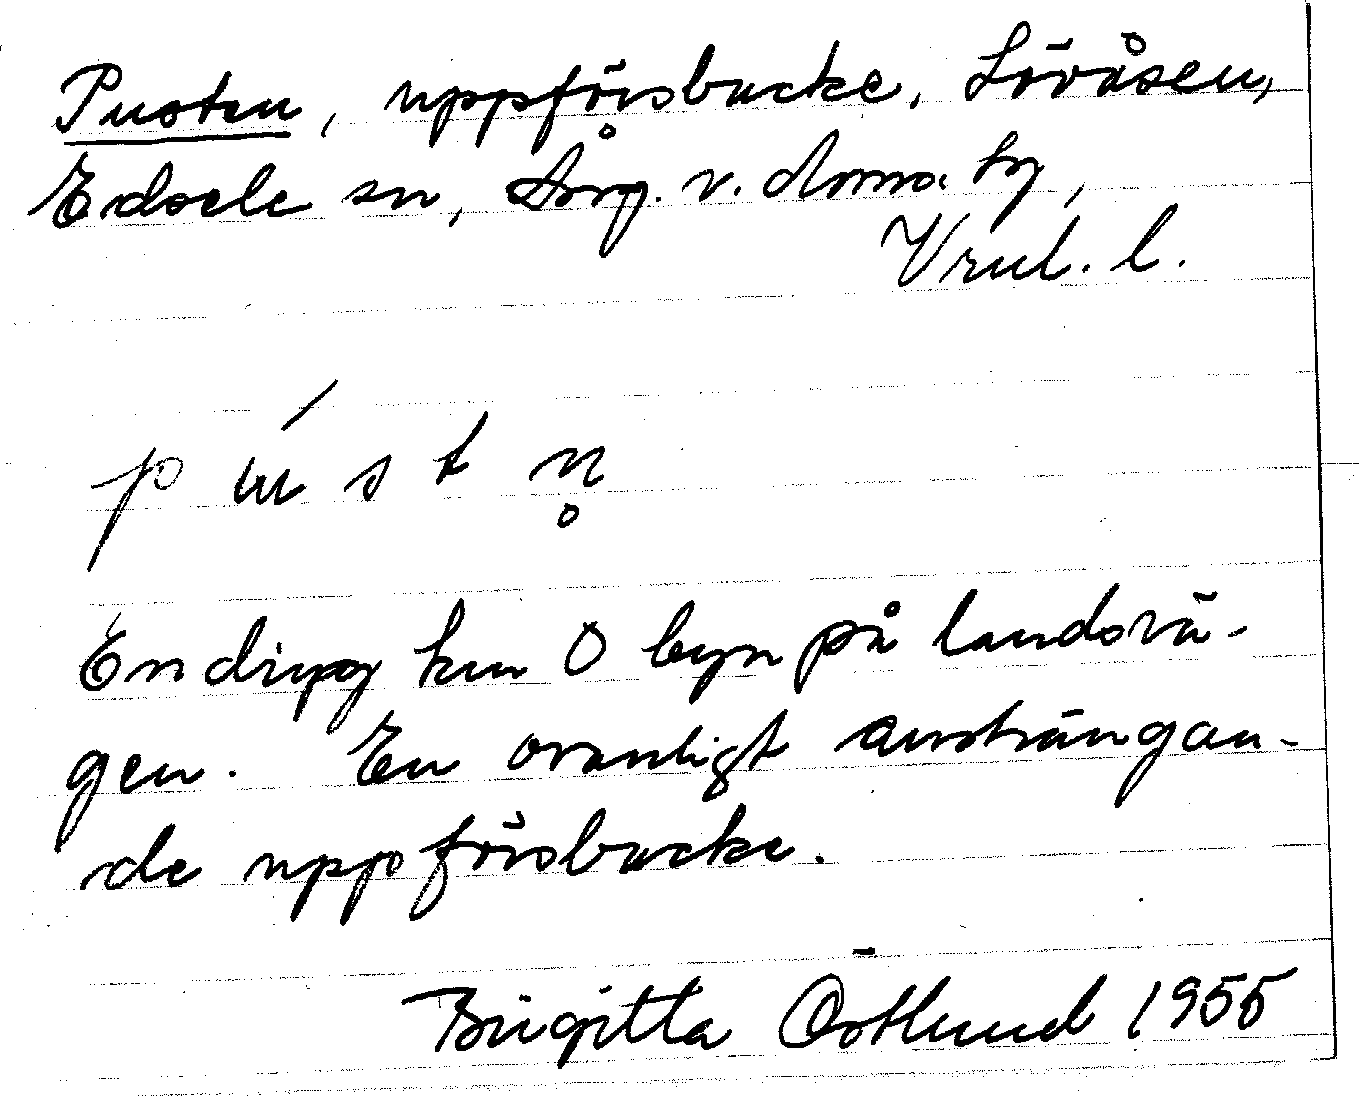 Pusten, uppförsbacke, Lövåsen,
Edsele sn, Ång. v. doms. by,
l.
p ú s t n̥
En dryg km Ö byn på landsvä-
gen. En ovanligt ansträngan-
de uppförsbacke.
Birgitta Östlund 1955